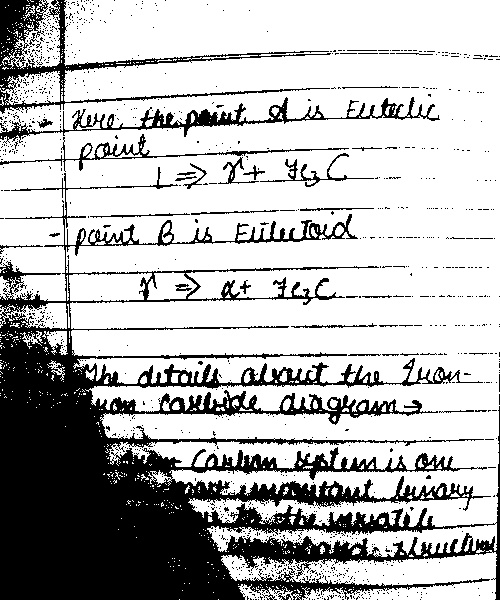 - Here the point A is Eutectic
point
L ⇒ γ + Fe₃C
- point B is Eutectoid
γ ⇒ α + Fe₃C
The details about the Iron-
carbide diagram →
Carbon system is one
most important binary
to the versatile